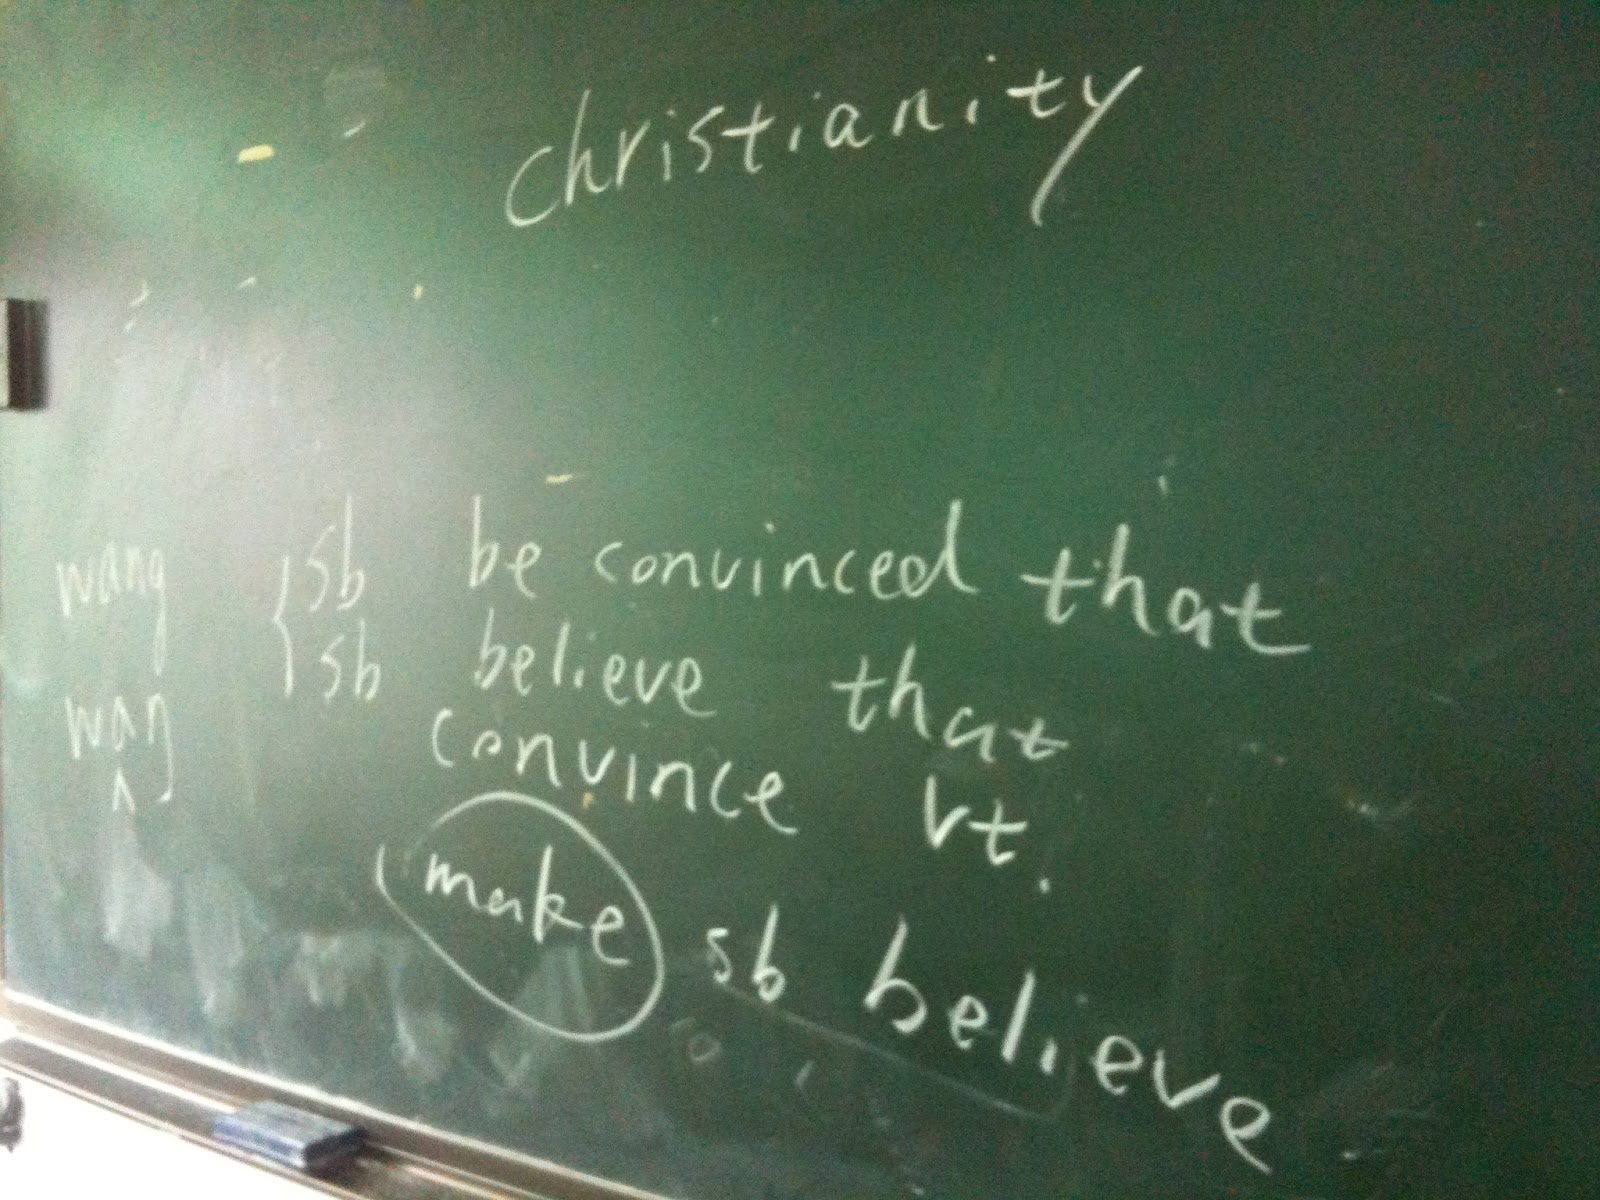 christianity
wang
sb be convinced that
sb believe that
wan
convince vt.
make sb believe